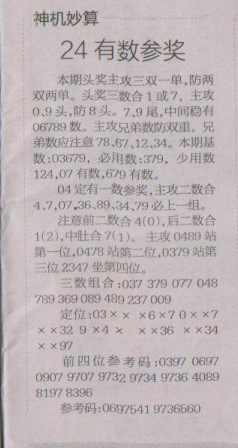 神机妙算
24有数参奖
本期头奖主攻三双一单,防两
双两单。头奖三数合1或7,主攻
0、9头,防8头。7、9尾,中间稳有
06789数。主攻兄弟数防双重。兄
弟数应注意78、67、12、34。本期基
数:03679,必用数:379,少用数
124,07有数,679有数。
04定有一数参奖,主攻二数合
4、7,07、36、89、34、79必上一组。
注意前二数合4(0),后二数合
1(2),中肚合7(1)。主攻0489站
第一位,0478站第二位,0379站第
三位2347坐第四位。
三数组合:037 379 077 048
789 369 089 489 237 009
定位:03×× ×6×7 0××7
××32 9×4× ××36 ××34
××97
前四位参考码:0397 0697
0907 9707 9732 9734 9736 4089
8197 8396
参考码:0697541 9736560